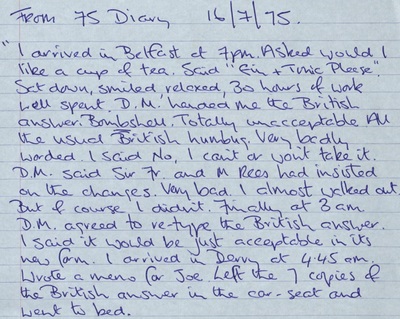 From 75 Diary 16/7/75.
"I arrived in Belfast at 7pm. Asked would I
like a cup of tea. Said "Gin + Tonic Please".
Sat down, smiled relaxed, 30 hours of work
well spent. D.M. handed me the British
answer. Bombshell. Totally unacceptable All
the usual British humbug. Very badly
worded. I said No, I can't or won't take it.
D.M. said Sir Fr. and M Rees had insisted
on the changes. Very bad. I almost walked out.
But of course I didn't. Finally at 3 am
D.M. agreed to re-type the British answer.
I said it would be just acceptable in its
new form. I arrived in Derry at 4.45 am.
Wrote a memo for Joe. Left the 7 copies of
the British answer in the car-seat and
went to bed.